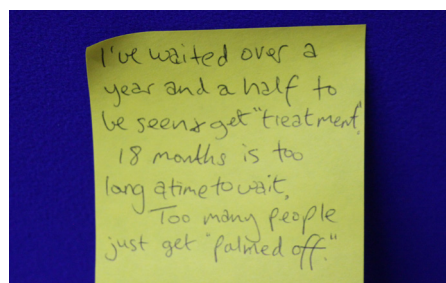 I've waited over a
year and a half to
be seen & get "treatment",
18 months is too
long a time to wait,
Too many people
just get "palmed off."